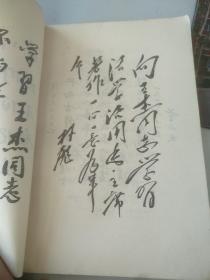 向王杰同志学习
活学活用毛主席
著作一心一意为革
命
林彪
学习王杰同志